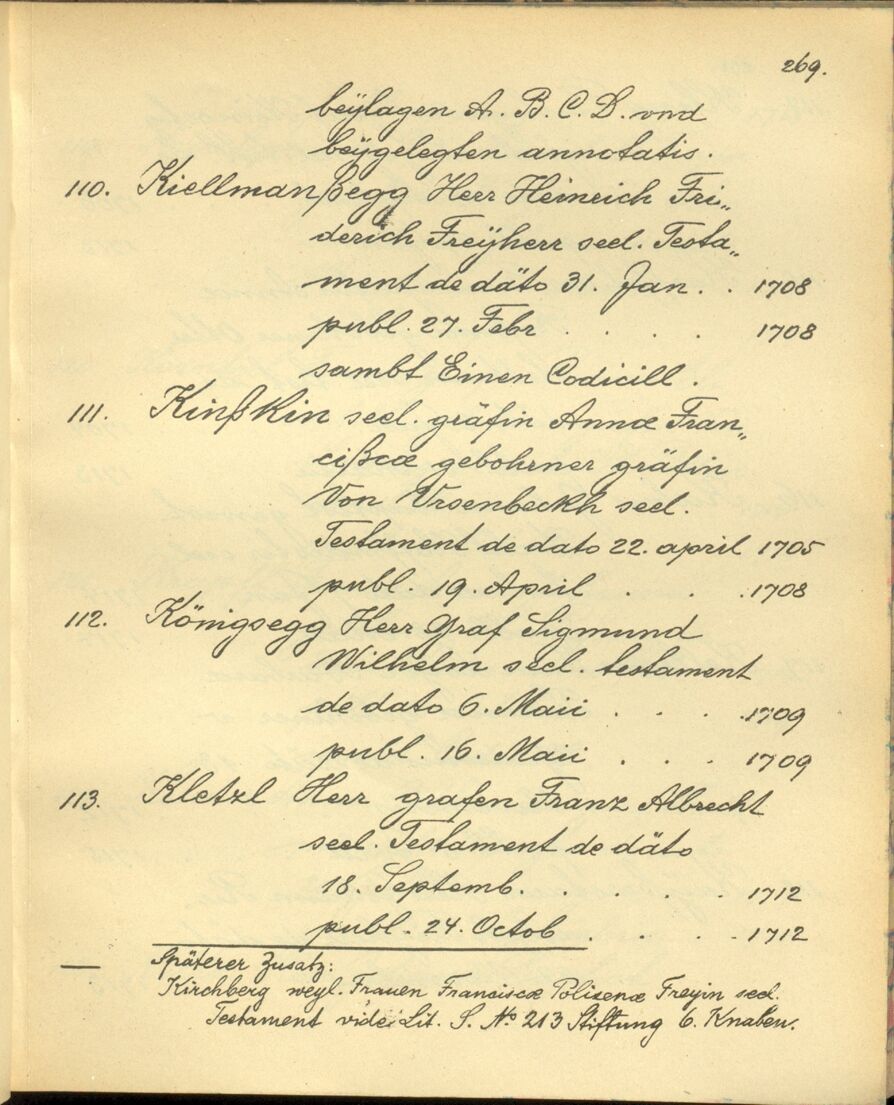 269.
beÿlagen A. B. C. D. vnd
beÿgelegten annotatis.
110. Kiellmanßegg Herr Heinrich Fri„
derich Freÿherr seel. Testa„
ment de däto 31. Jan. . 1708
publ. 27. Febr . . . . 1708
sambt Einen Codicill.
111. Kinßkin seel. gräfin Annæ Fran„
cißcæ gebohrner gräfin
Von Vrsenbeckh seel.
Testament de dato 22. april 1705
publ. 19. April . . . 1708
112. Königsegg Herr Graf Sigmund
Wilhelm seel. testament
de dato 6. Maii . . . 1709
publ. 16. Maii . . . 1709
113. Kletzl Herr grafen Franz Albrecht
seel. Testament de däto
18. Septemb. . . . . 1712
publ. 24. Octob . . . . 1712
Späterer Zusatz:
— Kirchberg weyl. Frauen Franciscæ Polixenæ Freyin seel.
Testament vide Lit. S. No 213 Stiftung 6. Knaben.